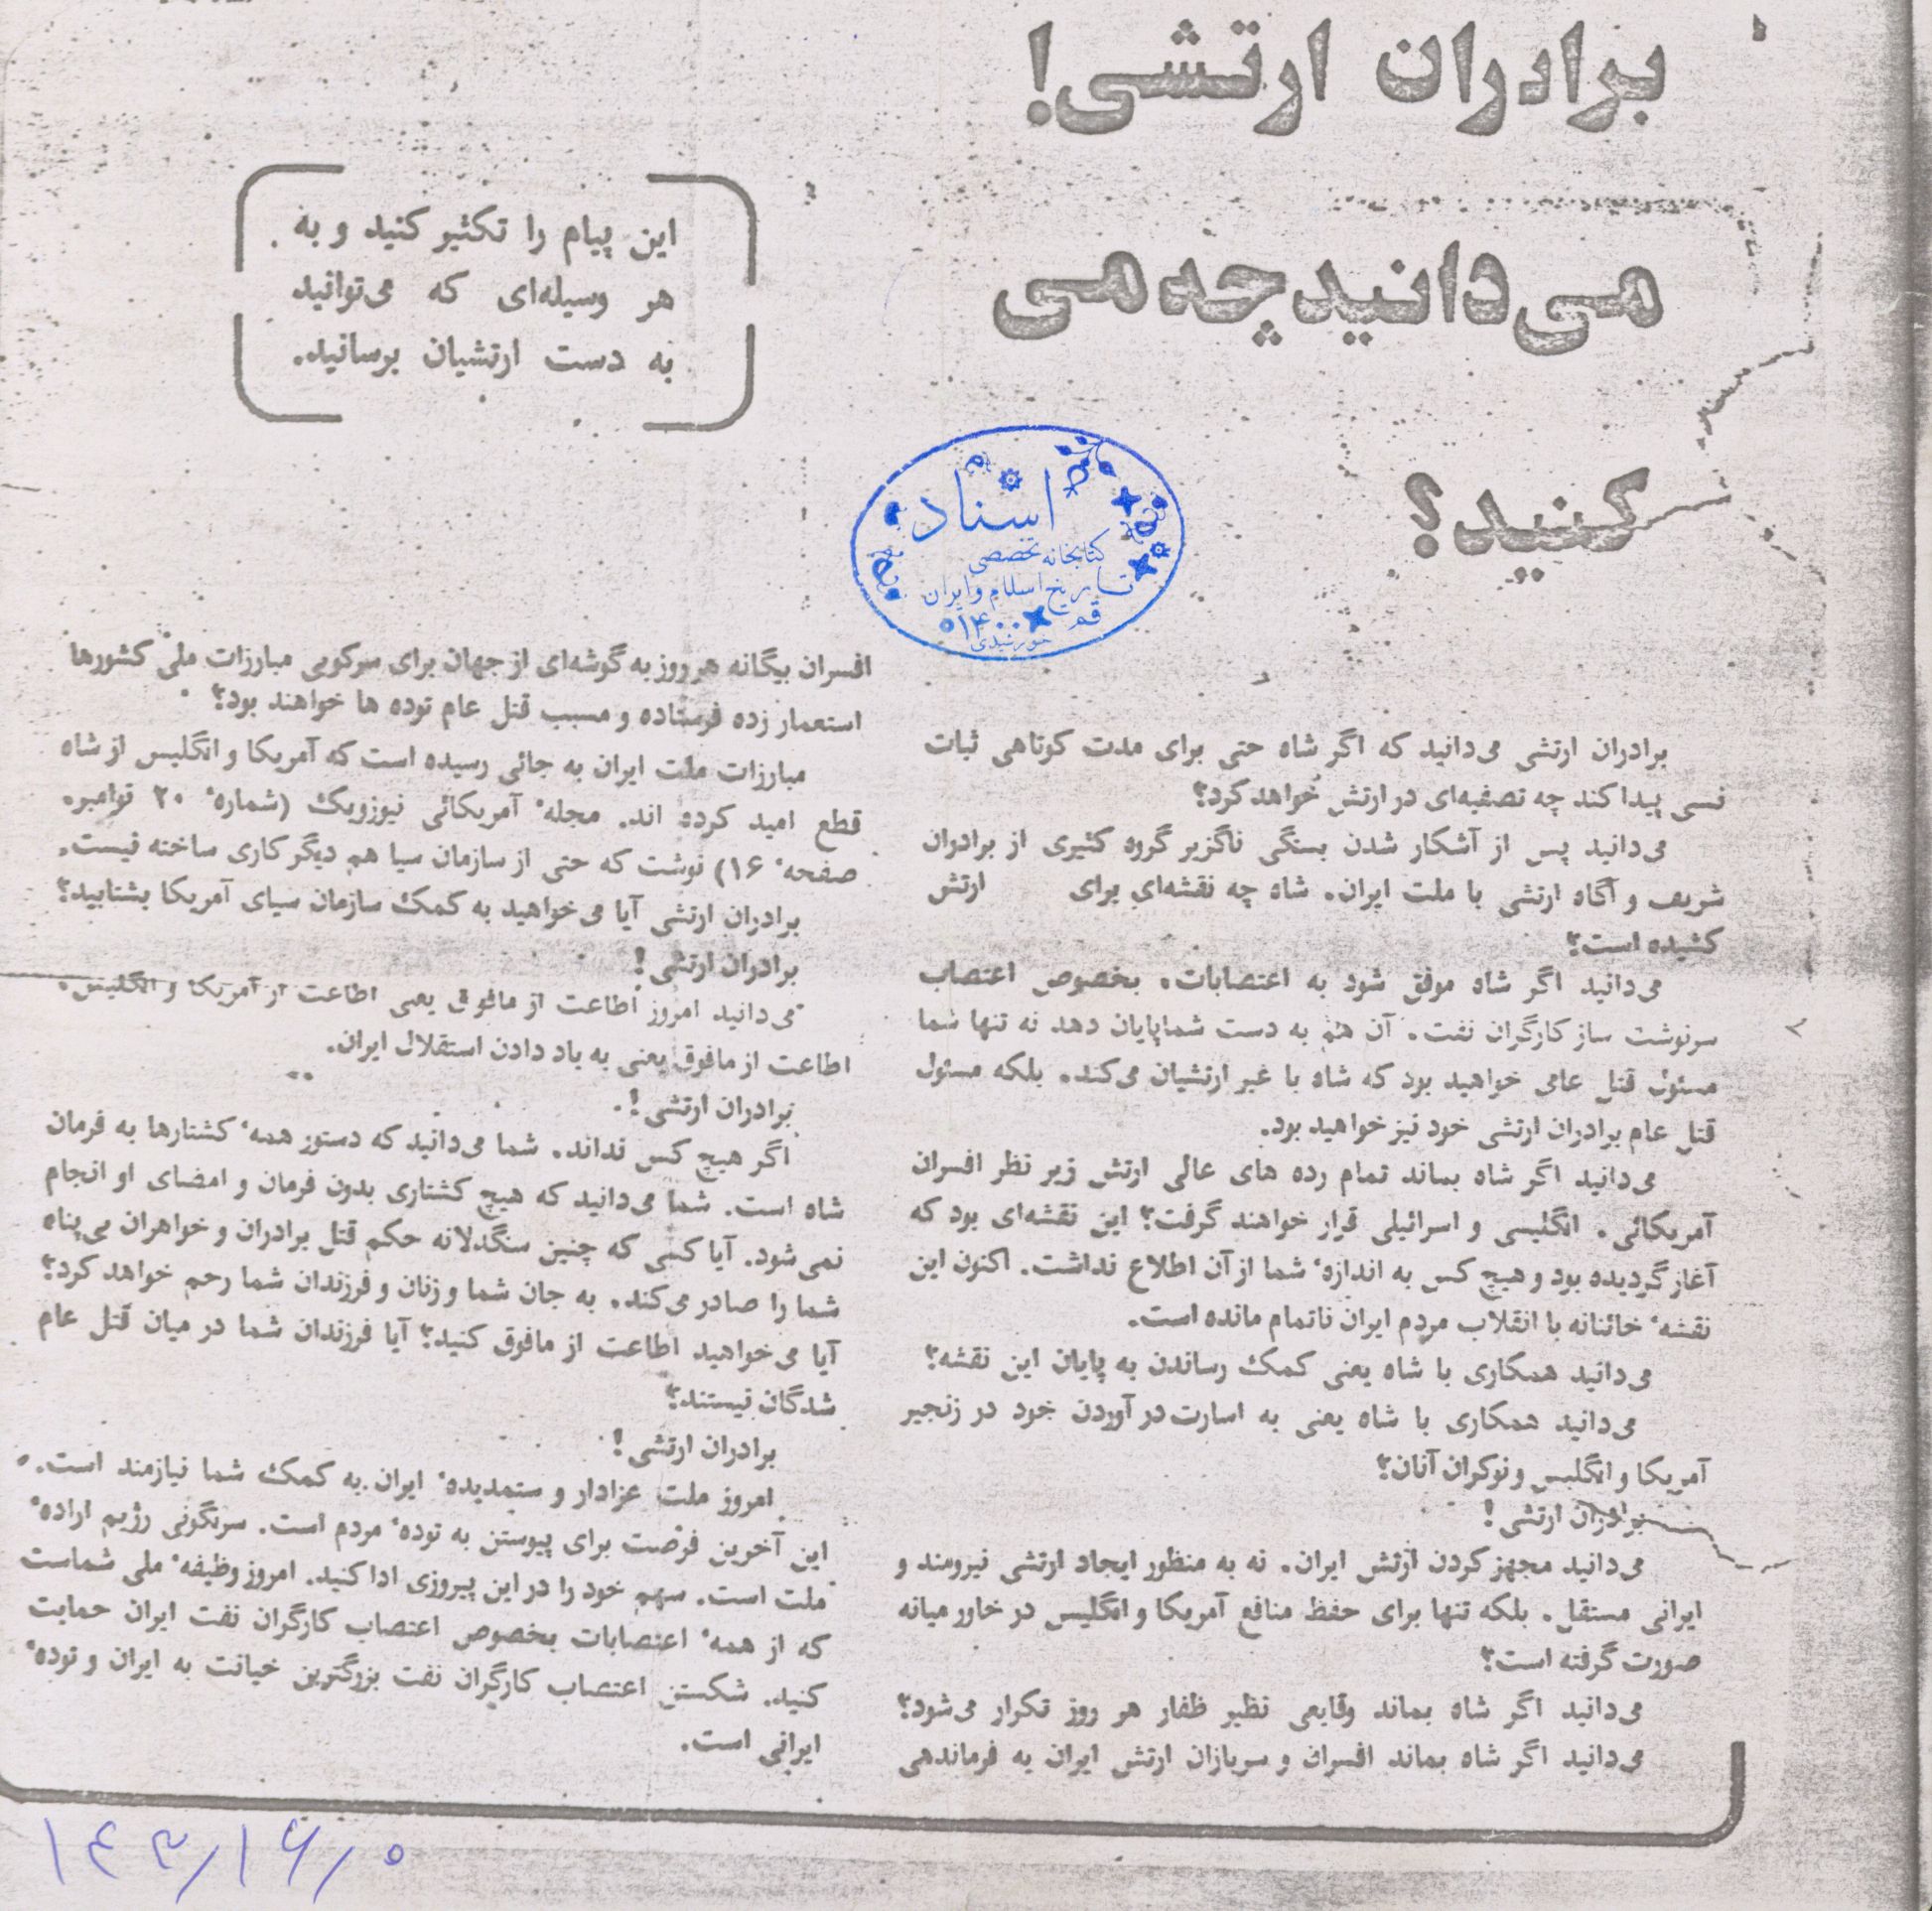 برادران ارتشی!
می‌دانید چه می
کنید؟
این پیام را تکثیر کنید و به
هر وسیله‌ای که می‌توانید
به دست ارتشیان برسانید.
اسناد
کتابخانه تخصصی
تاریخ اسلام و ایران
قم
۱۴۰۰
خورشیدی
برادران ارتشی می‌دانید که اگر شاه حتی برای مدت کوتاهی ثبات
نسبی پیدا کند چه تصفیه‌ای در ارتش خواهد کرد؟
می‌دانید پس از آشکار شدن بستگی ناگزیر گروه کثیری از برادران
شریف و آگاه ارتشی با ملت ایران. شاه چه نقشه‌ای برای ارتش
کشیده است؟
می‌دانید اگر شاه موفق شود به اعتصابات. بخصوص اعتصاب
سرنوشت ساز کارگران نفت. آن هم به دست شما پایان دهد نه تنها شما
مسئول قتل عامی خواهید بود که شاه با غیر ارتشیان می‌کند. بلکه مسئول
قتل عام برادران ارتشی خود نیز خواهید بود.
می‌دانید اگر شاه بماند تمام رده های عالی ارتش زیر نظر افسران
آمریکائی. انگلیسی و اسرائیلی قرار خواهند گرفت؟ این نقشه‌ای بود که
آغاز گردیده بود و هیچ کس به اندازهٔ شما از آن اطلاع نداشت. اکنون این
نقشهٔ خائنانه با انقلاب مردم ایران ناتمام مانده است.
می‌دانید همکاری با شاه یعنی کمک رساندن به پایان این نقشه؟
می‌دانید همکاری با شاه یعنی به اسارت در آوردن خود در زنجیر
آمریکا و انگلیس و نوکران آنان؟
برادران ارتشی!
می‌دانید مجهز کردن ارتش ایران. نه به منظور ایجاد ارتشی نیرومند و
ایرانی مستقل. بلکه تنها برای حفظ منافع آمریکا و انگلیس در خاور میانه
صورت گرفته است؟
می‌دانید اگر شاه بماند وقایعی نظیر ظفار هر روز تکرار می‌شود؟
می‌دانید اگر شاه بماند افسران و سربازان ارتش ایران به فرماندهی
افسران بیگانه هر روز به گوشه‌ای از جهان برای سرکوبی مبارزات ملی کشورها
استعمار زده فرستاده و مسبب قتل عام توده ها خواهند بود؟
مبارزات ملت ایران به جائی رسیده است که آمریکا و انگلیس از شاه
قطع امید کرده اند. مجلهٔ آمریکائی نیوزویک (شمارهٔ ۲۰ نوامبر.
صفحهٔ ۱۶) نوشت که حتی از سازمان سیا هم دیگر کاری ساخته نیست.
برادران ارتشی آیا می‌خواهید به کمک سازمان سیای آمریکا بشتابید؟
برادران ارتشی!
می‌دانید امروز اطاعت از مافوق یعنی اطاعت از آمریکا و انگلیس.
اطاعت از مافوق یعنی به باد دادن استقلال ایران.
برادران ارتشی!
اگر هیچ کس نداند. شما می‌دانید که دستور همهٔ کشتارها به فرمان
شاه است. شما می‌دانید که هیچ کشتاری بدون فرمان و امضای او انجام
نمی‌شود. آیا کسی که چنین سنگدلانه حکم قتل برادران و خواهران بی‌پناه
شما را صادر می‌کند. به جان شما و زنان و فرزندان شما رحم خواهد کرد؟
آیا می‌خواهید اطاعت از مافوق کنید؟ آیا فرزندان شما در میان قتل عام
شدگان نیستند؟
برادران ارتشی!
امروز ملت عزادار و ستمدیدهٔ ایران به کمک شما نیازمند است.
این آخرین فرصت برای پیوستن به تودهٔ مردم است. سرنگونی رژیم ارادهٔ
ملت است. سهم خود را در این پیروزی ادا کنید. امروز وظیفهٔ ملی شماست
که از همهٔ اعتصابات بخصوص اعتصاب کارگران نفت ایران حمایت
کنید. شکستن اعتصاب کارگران نفت بزرگترین خیانت به ایران و تودهٔ
ایرانی است.